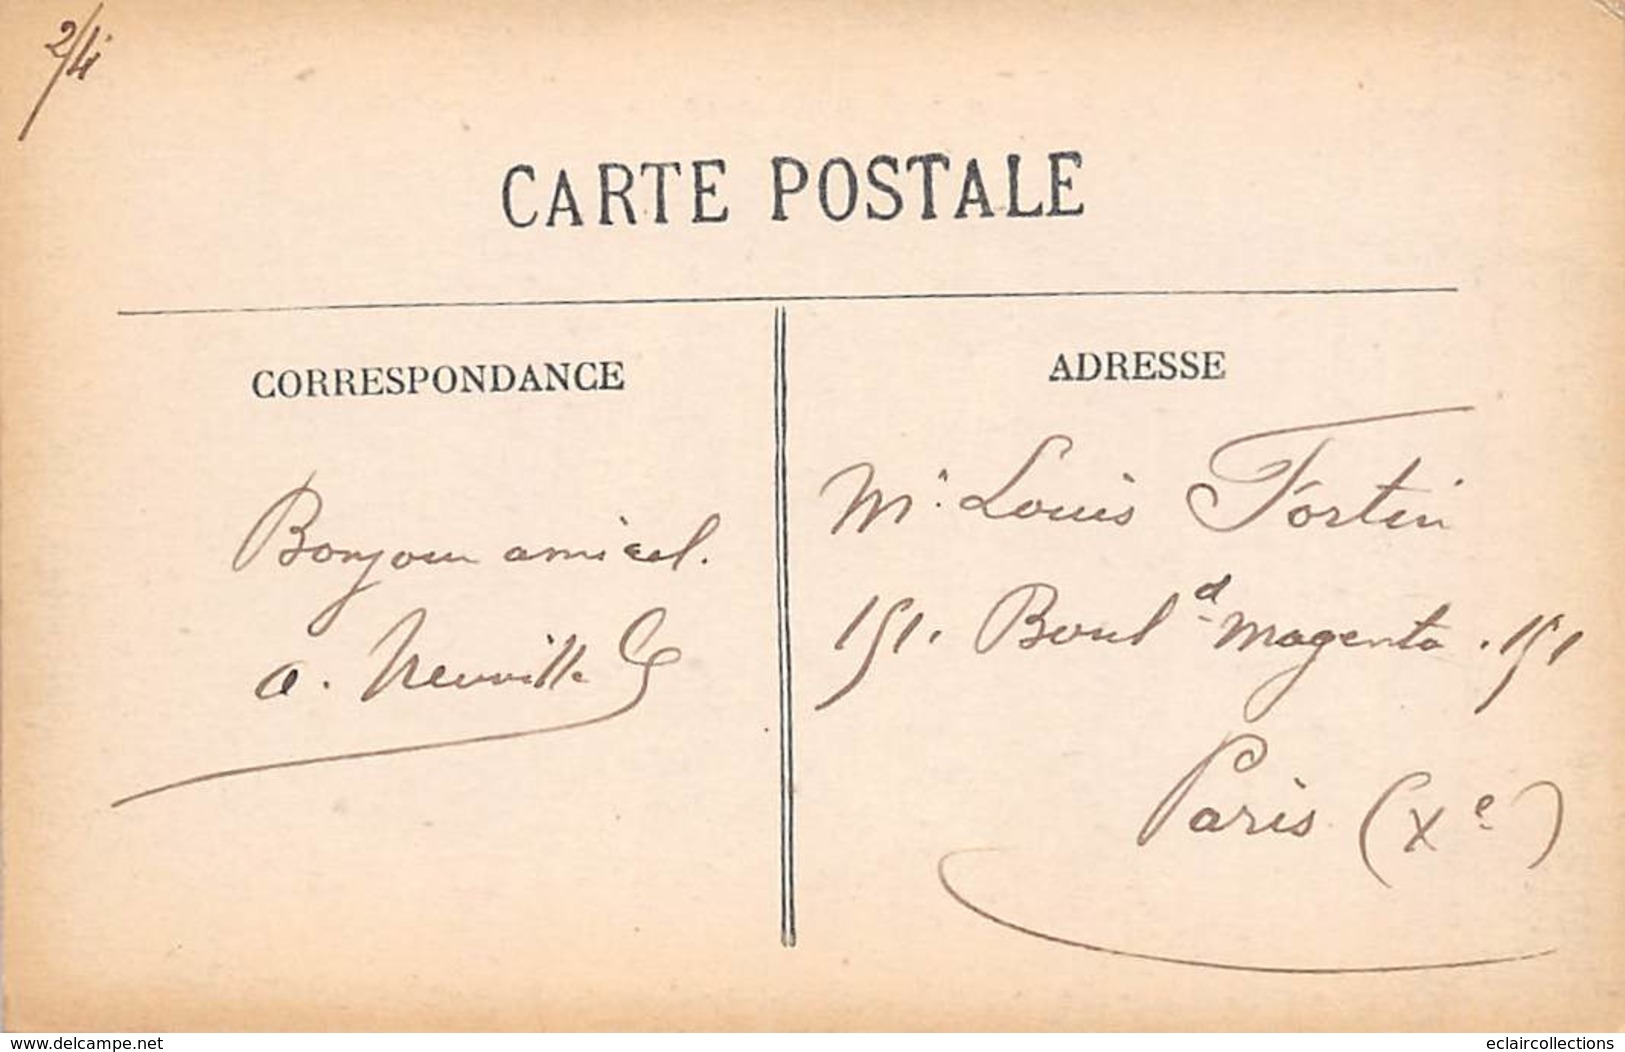 2/4
CARTE POSTALE
CORRESPONDANCE
Bonjour amical.
a. Neuville
ADRESSE
Mr. Louis Fortin
151. Boul d Magenta. 151
Paris (Xe)
www.delcampe.net
eclaircollections